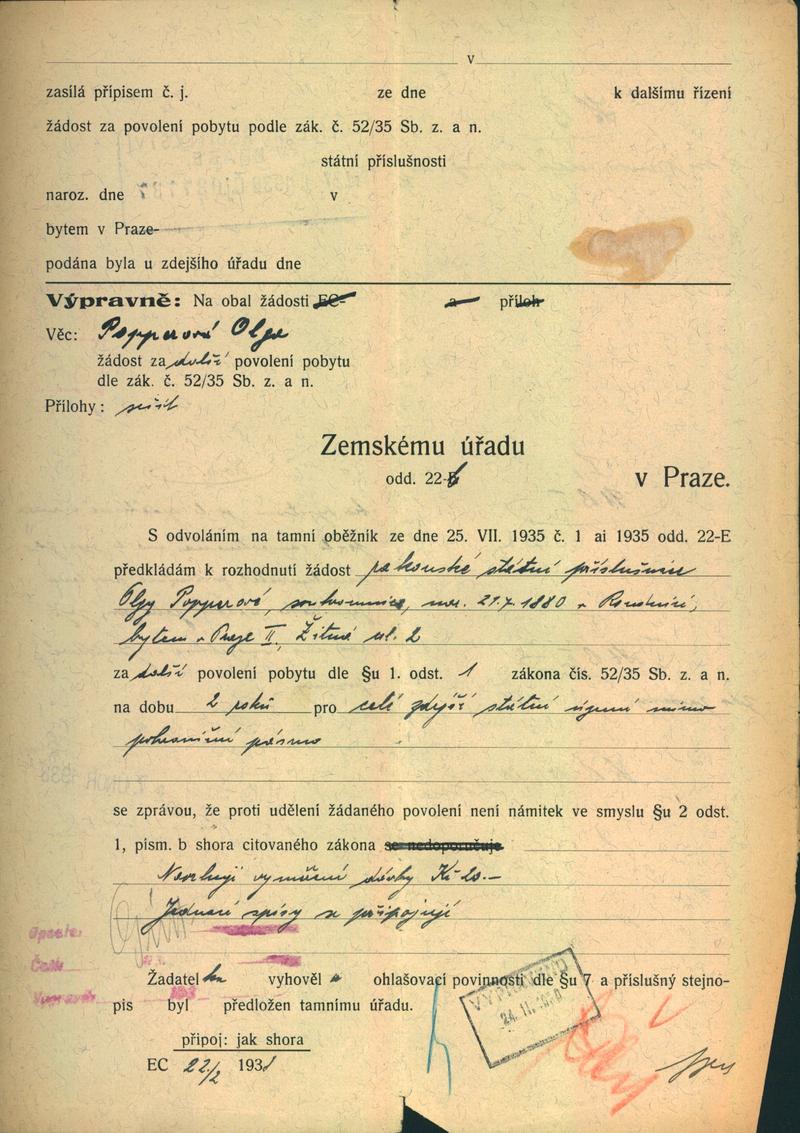 v
zasílá přípisem č. j. ze dne k dalšímu řízení
žádost za povolení pobytu podle zák. č. 52/35 Sb. z. a n.
státní příslušnosti
naroz. dne v
bytem v Praze-
podána byla u zdejšího úřadu dne
Výpravně: Na obal žádosti EC- a příloh
Věc: Popperová Olga
žádost za další povolení pobytu
dle zák. č. 52/35 Sb. z. a n.
Přílohy: sešit
Zemskému úřadu
odd. 22-
v Praze.
S odvoláním na tamní oběžník ze dne 25. VII. 1935 č. 1 ai 1935 odd. 22-E
předkládám k rozhodnutí žádost rakouské státní příslušnice
Olgy Popperové, soukromnice, nar. 21.7.1880 v Roudnici,
bytem v Praze II, Žitná ul. 2
za další povolení pobytu dle §u 1. odst. 1 zákona čís. 52/35 Sb. z. a n.
na dobu 2 roků pro celé zdejší státní území mimo
pohraniční pásmo
se zprávou, že proti udělení žádaného povolení není námitek ve smyslu §u 2 odst.
1, písm. b shora citovaného zákona se nedoporučuje
Navrhuji vyměření dávky Kč 20.-
Jednací spisy se připojují
Žadatelka vyhověla ohlašovací povinnosti dle §u 7 a příslušný stejno-
pis byl předložen tamnímu úřadu.
připoj: jak shora
EC 22/2 1938